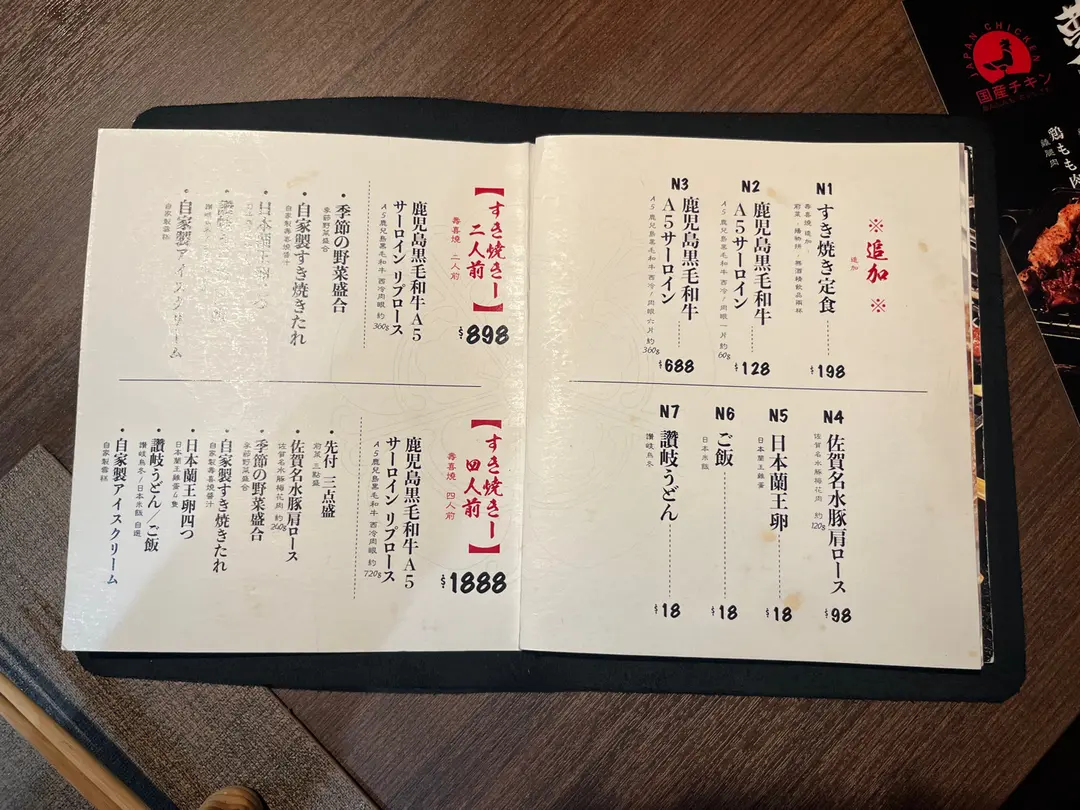 ※ 追加 ※
追加
N1
すき焼き定食
壽喜燒 追加
$198
N2
鹿児島黒毛和牛
A5サーロイン
A5鹿兒島黑毛和牛 西冷/肉眼 一片 約60g
$128
N3
鹿児島黒毛和牛
A5サーロイン
A5鹿兒島黑毛和牛 西冷/肉眼 六片 約360g
$688
N4
佐賀名水豚肩ロース
佐賀名水豚梅花肉 約120g
$98
N5
日本蘭王卵
日本蘭王雞蛋
$18
N6
ご飯
日本米飯
$18
N7
讃岐うどん
讚岐烏冬
$18
【すき焼きー
二人前】
壽喜燒 二人前
$898
鹿児島黒毛和牛A5
サーロイン リブロース
A5鹿兒島黑毛和牛 西冷肉眼 約360g
• 季節の野菜盛合
季節野菜盛合
• 自家製すき焼きたれ
自家製壽喜燒醬汁
• 日本蘭王卵二つ
• 自家製アイスクリーム
自家製雪糕
【すき焼きー
四人前】
壽喜燒 四人前
$1888
鹿児島黒毛和牛A5
サーロイン リブロース
A5鹿兒島黑毛和牛 西冷肉眼 約720g
• 先付 三点盛
前菜 三點盛
• 佐賀名水豚肩ロース
佐賀名水豚梅花肉 約240g
• 季節の野菜盛合
季節野菜盛合
• 自家製すき焼きたれ
自家製壽喜燒醬汁
• 日本蘭王卵四つ
日本蘭王雞蛋4隻
• 讃岐うどん/ご飯
讚岐烏冬/日本米飯 自選
• 自家製アイスクリーム
自家製雪糕
JAPAN CHICKEN
国産チキン
鶏もも肉
雞腿肉